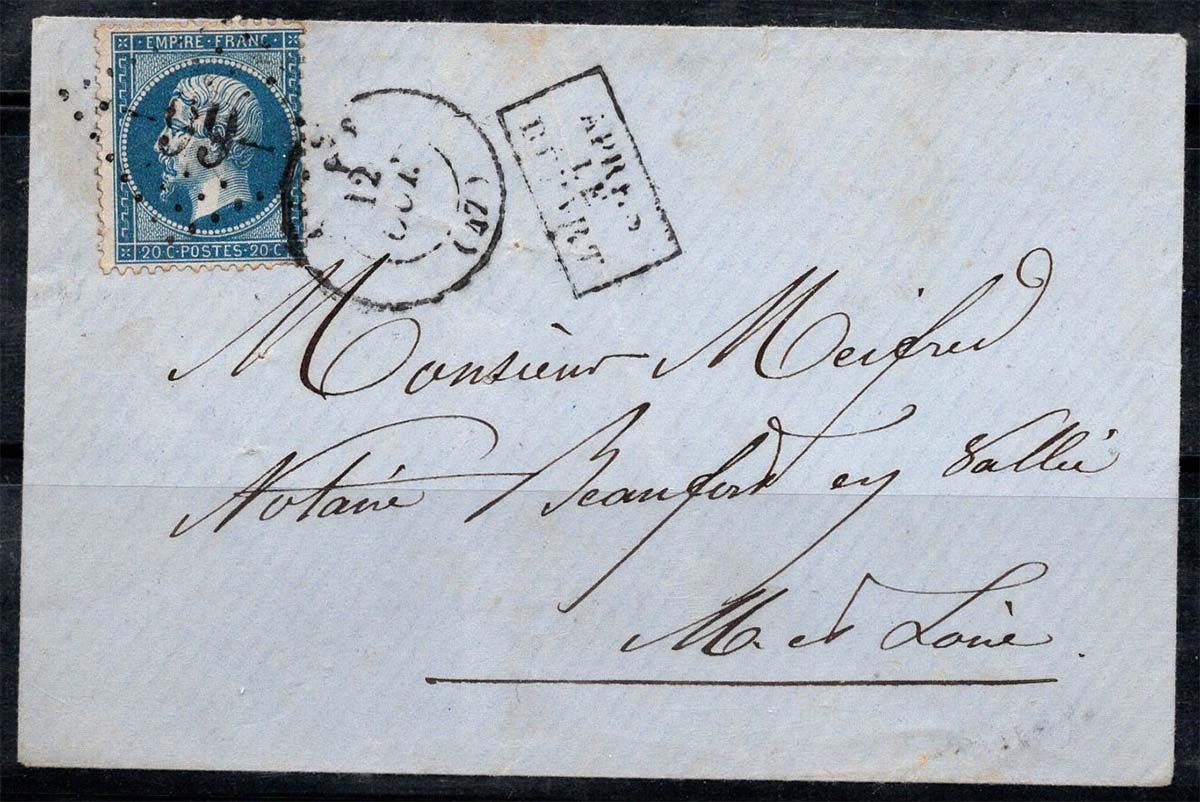 EMPIRE · FRANC ·
99
20 · C · POSTES · 20 · C
12
(47)
APRÈS
LE
DÉPART
Monsieur Meifred
Notaire Beaufort en Vallée
M. et Loire.